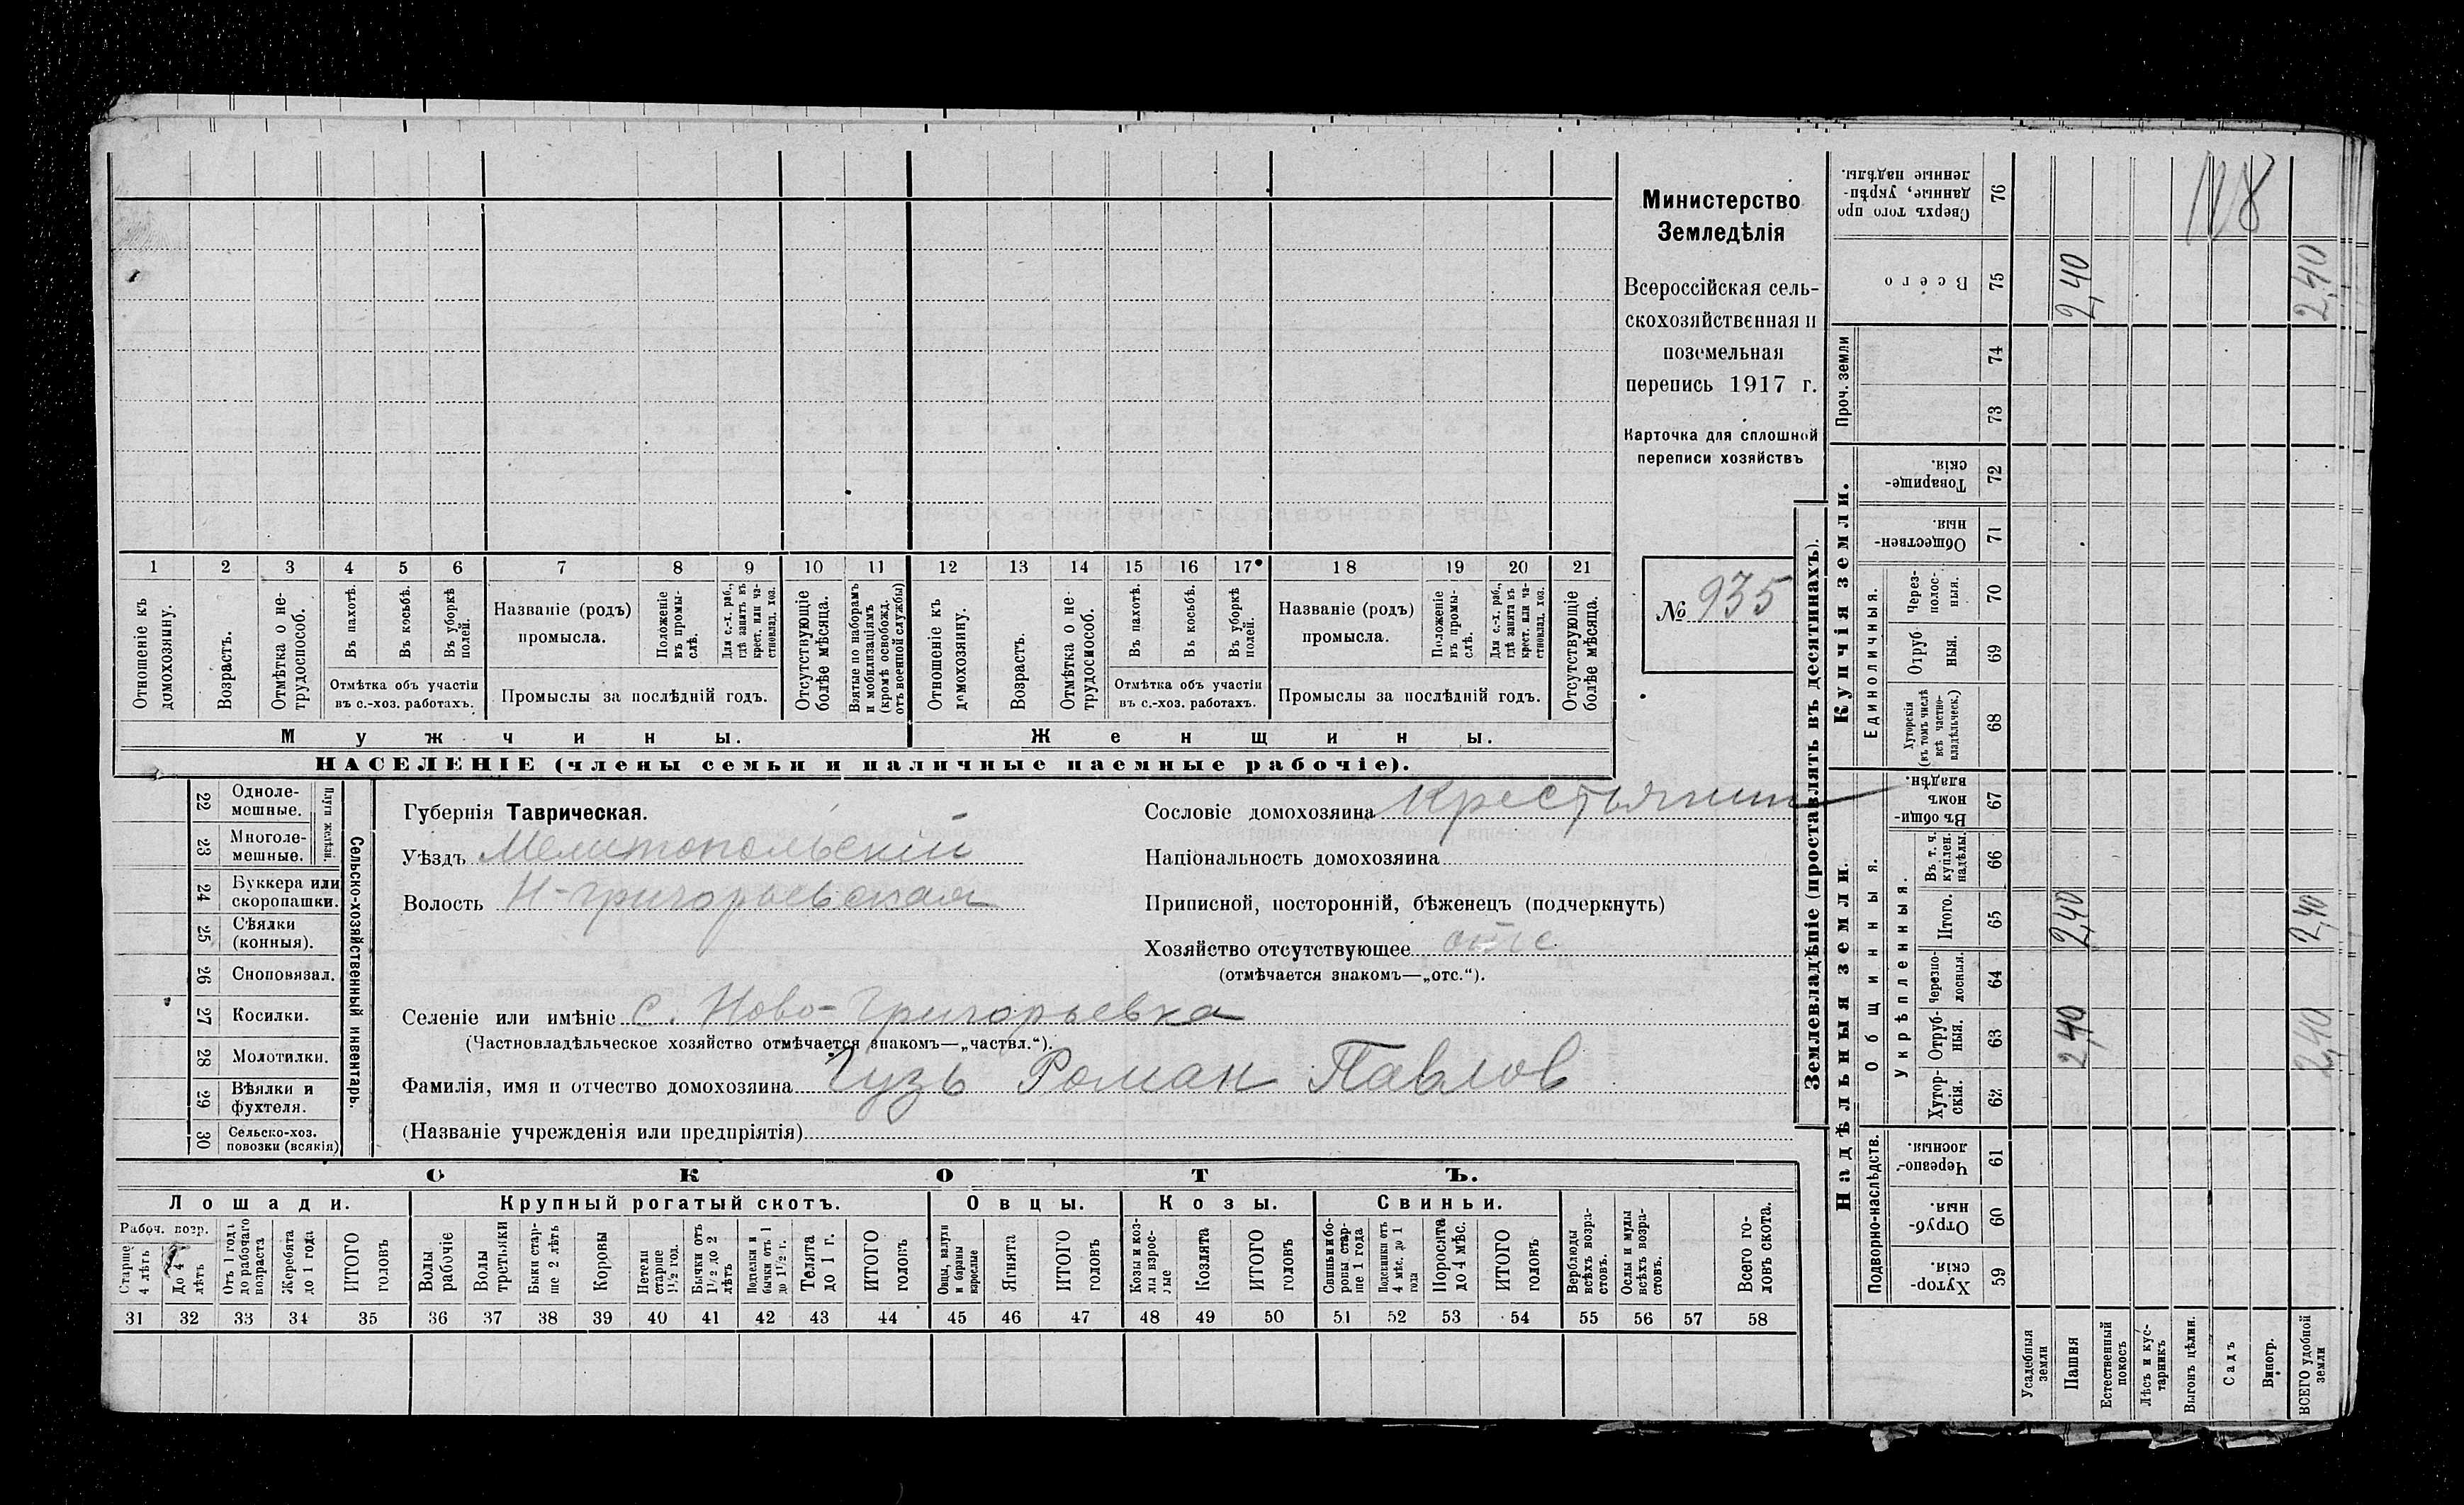 Министерство
Земледѣлія
Всероссійская сель-
скохозяйственная и
поземельная
перепись 1917 г.
Карточка для сплошной
переписи хозяйствъ
№ 935
1 2 3 4 5 6 7 8 9 10 11 12 13 14 15 16 17 18 19 20 21
Отношеніе къ домохозяину.
Возрастъ.
Отмѣтка о не-трудоспособ.
Въ пахотѣ.
Въ косьбѣ.
Въ уборкѣ полей.
Отмѣтка объ участіи
въ с.-хоз. работахъ.
Названіе (родъ)
промысла.
Положеніе въ промы-слѣ.
Для с.-х. раб., гдѣ занятъ въ крест. или ча-стновлад. хоз.
Промыслы за послѣдній годъ.
Отсутствующіе болѣе мѣсяца.
Взятые по наборамъ и мобилизаціямъ (кромѣ освобожд. отъ военной службы)
Отношеніе къ домохозяину.
Возрастъ.
Отмѣтка о не-трудоспособ.
Въ пахотѣ.
Въ косьбѣ.
Въ уборкѣ полей.
Отмѣтка объ участіи
въ с.-хоз. работахъ.
Названіе (родъ)
промысла.
Положеніе въ промы-слѣ.
Для с.-х. раб., гдѣ занята въ крест. или ча-стновлад. хоз.
Промыслы за послѣдній годъ.
Отсутствующіе болѣе мѣсяца.
Мужчины.
Женщины.
НАСЕЛЕНІЕ (члены семьи и наличные наемные рабочіе).
22 Одноле-мешные.
23 Многоле-мешные.
Плуги желѣзн.
24 Буккера или скоропашки.
25 Сѣялки (конныя).
26 Сноповязал.
27 Косилки.
28 Молотилки.
29 Вѣялки и фухтеля.
30 Сельско-хоз. повозки (всякія)
Сельско-хозяйственный инвентарь.
Губернія Таврическая.
Уѣздъ Мелитопольскій
Волость Н-Григорьевская
Сословіе домохозяина Крестьянин
Національность домохозяина
Приписной, посторонній, бѣженецъ (подчеркнуть)
Хозяйство отсутствующее отс
(отмѣчается знакомъ—„отс.“).
Селеніе или имѣніе с. Ново-Григорьевка
(Частновладѣльческое хозяйство отмѣчается знакомъ—„частвл.“).
Фамилія, имя и отчество домохозяина Гузь Роман Павлов
(Названіе учрежденія или предпріятія)
СКОТЪ.
Лошади.
Крупный рогатый скотъ.
Овцы.
Козы.
Свиньи.
Рабоч. возр.
Старше 4 лѣтъ
До 4 лѣтъ
Отъ 1 года до рабочаго возраста
Жеребята до 1 года
ИТОГО головъ
Волы рабочіе
Волы третьяки
Быки стар-ше 2 лѣтъ
Коровы
Нетели старше 1½ год.
Бычки отъ 1½ до 2 лѣтъ
Подтелки и бычки отъ 1 до 1½ г.
Телята до 1 г.
ИТОГО головъ
Овцы, валухи и бараны взрослые
Ягнята
ИТОГО головъ
Козы и коз-лы взрос-лые
Козлята
ИТОГО головъ
Свиньи и бо-ровы стар-ше 1 года
Подсвинки отъ 4 мѣс. до 1 года
Поросята до 4 мѣс.
ИТОГО головъ
Верблюды всѣхъ возра-стовъ.
Ослы и мулы всѣхъ возра-стовъ.
Всего го-ловъ скота.
31 32 33 34 35 36 37 38 39 40 41 42 43 44 45 46 47 48 49 50 51 52 53 54 55 56 57 58
Землевладѣніе (проставлять въ десятинахъ).
Надѣльныя земли.
Купчія земли.
Проч. земли
Подворно-наслѣдств.
Общинныя.
Укрѣпленныя.
Единоличныя.
Хутор-скія. 59
Отруб-ныя. 60
Черезпо-лосныя. 61
Хутор-скія. 62
Отруб-ныя. 63 2,40 2,40
Черезпо-лосныя. 64
Итого. 65 2,40 2,40
Въ т. ч. куплен. надѣлы 66
Въ общи-номъ владѣн. 67
Хуторскія (въ томъ числѣ всѣ частно-владѣльческ.) 68
Отруб-ныя. 69
Через-полос-ныя. 70
Обществен-ныя. 71
Товарище-скія. 72
73
74
Всего 75 2,40 2,40
Сверхъ того про-данные, укрѣп-ленные надѣлы. 76
Усадебныя земли
Пашня
Естественный покосъ
Лѣсъ и кус-тарникъ
Выгонъ цѣлин.
Садъ
Виногр.
ВСЕГО удобной земли